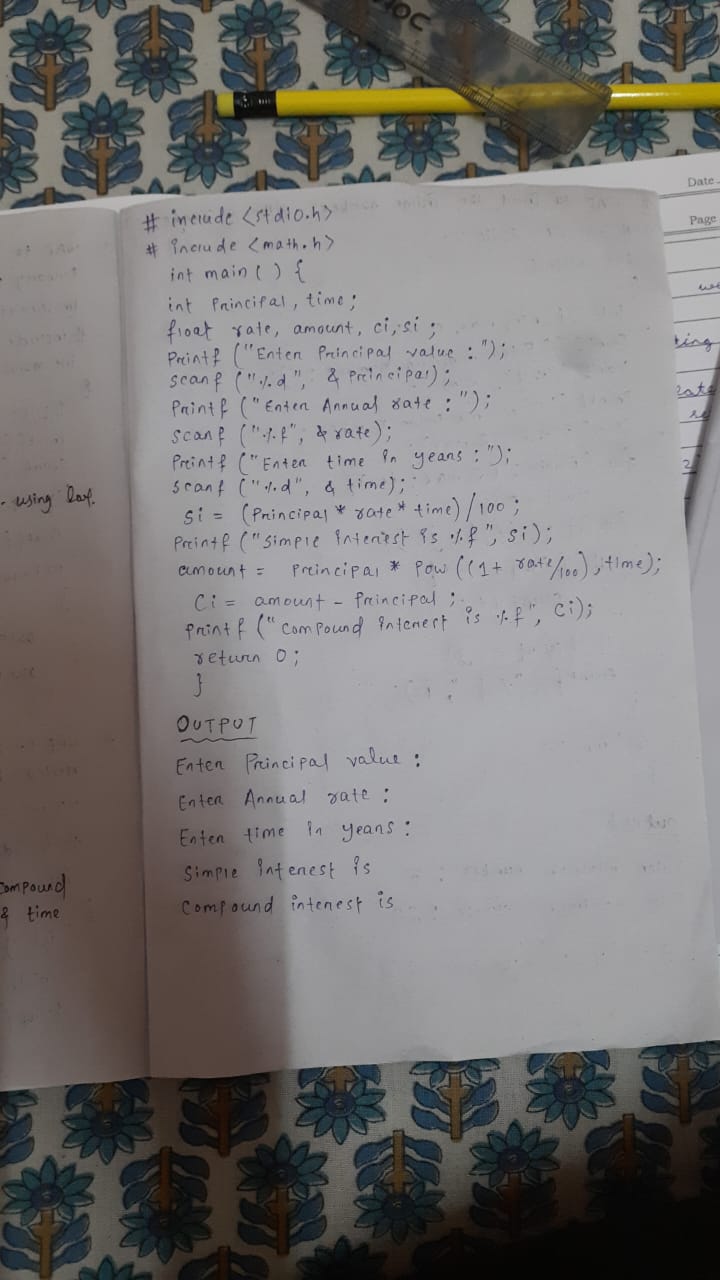 Date
Page
# include <stdio.h>
# include <math.h>
int main ( ) {
int Principal, time;
float rate, amount, ci, si ;
Printf ("Enter Principal value :");
scanf ("%d", & Principal);
Printf ("Enter Annual rate :");
scanf ("%f", & rate);
Printf ("Enter time in years :");
scanf ("%d", & time);
si = (Principal * rate * time) / 100 ;
Printf ("Simple interest is %f", si);
amount = Principal * Pow ((1+ rate/100), time);
Ci = amount - Principal ;
Printf ("Compound interest is %f", Ci);
return 0 ;
}
OUTPUT
Enter Principal value :
Enter Annual rate :
Enter time in years :
Simple interest is
Compound interest is
using
Compound
& time